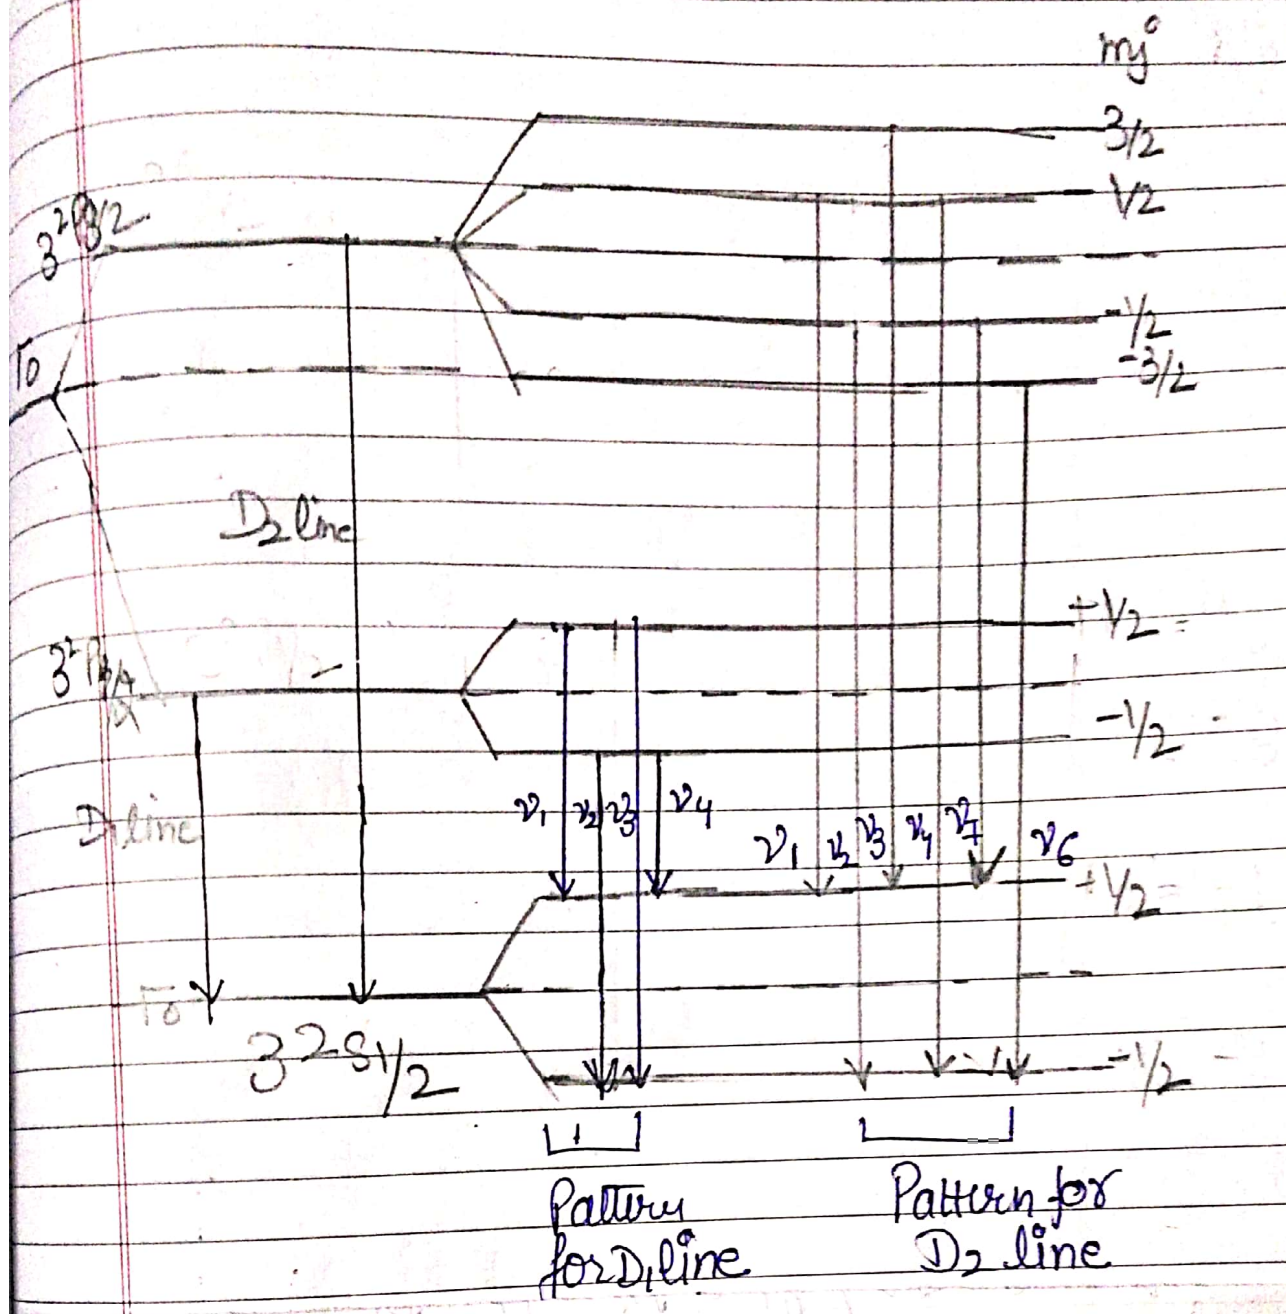 mj
3/2
1/2
3²P3/2
-1/2
-3/2
To
D2 line
+1/2
3²P
-1/2
D1 line
ν1 ν2 ν3 ν4
ν1 ν2 ν3 ν4 ν7 ν6
+1/2
To
3²S1/2
-1/2
Pattern
for D1 line
Pattern for
D2 line